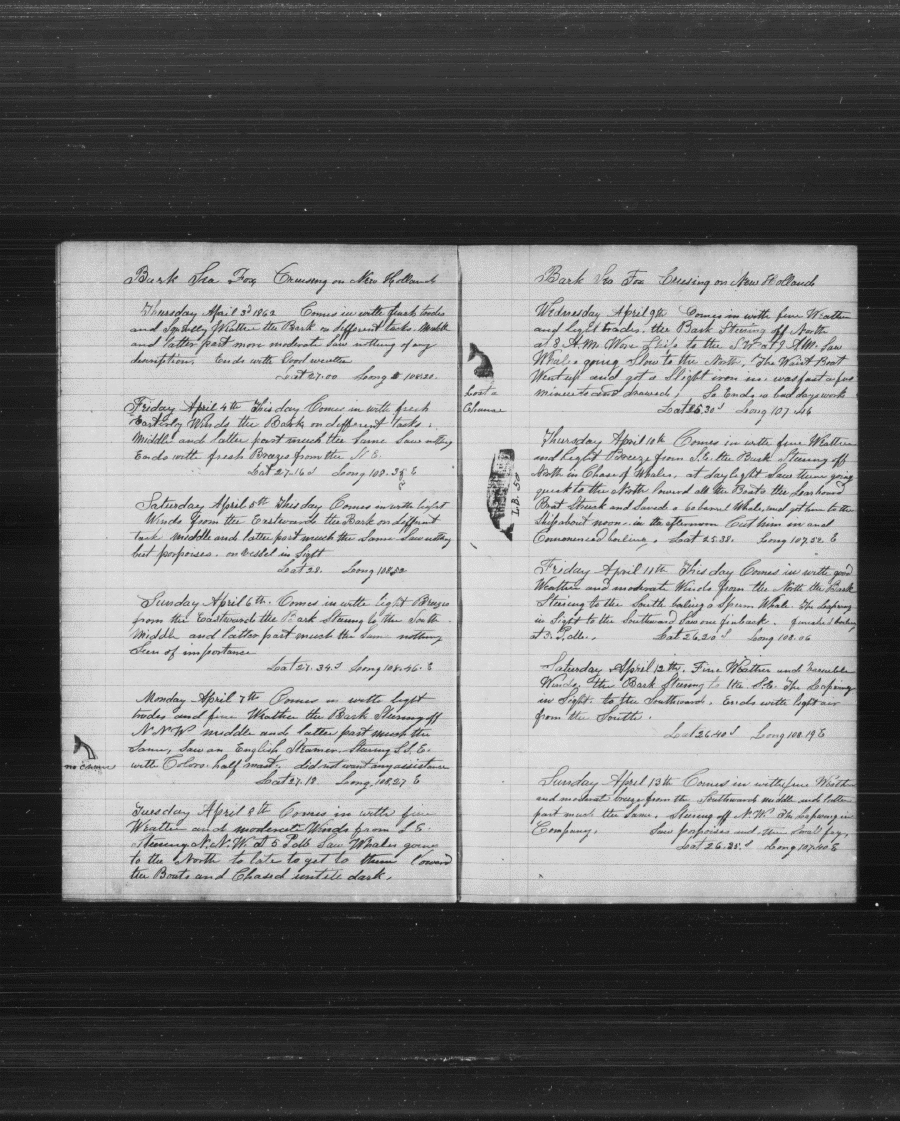 Bark Sea Fox Cruising on New Holland
Thursday April 3d 1862 Comes in with fresh trades
and Squally Weather the Bark on different tacks. Middle
and latter part more moderate Saw nothing of any
description. Ends with Good weather
Lat 27.00 Long 108.20.
Friday April 4th This day Comes in with fresh
Easterly Winds the Bark on different tacks.
Middle and latter part much the Same Saw nothing
Ends with fresh Breezes from the S E.
Lat 27.16 S Long 108.38 E
Saturday April 5th This day Comes in with light
Winds from the Eastward the Bark on different
tack middle and latter part much the Same Saw nothing
but porpoises. on vessel in Sight
Lat 28. Long 108.32
Sunday April 6th. Comes in with light Breezes
from the Eastward the Bark Stering to the South.
Middle and latter part much the Same nothing
Seen of importance
Lat 27.34 S Long 108.46. E
Monday April 7th Comes in with light
trades and fine Weather the Bark Stering off
N.N.W. middle and latter part much the
Same, Saw an English Steamer Stering S.S.E.
with Colors half mast. did not want any assistance
Lat 27.18 Long 108.27 E
no chance
Tuesday April 8th Comes in with fine
Weather and moderate Winds from S E.
Stering N.N.W. at 5 P.M. Saw Whales going
to the North to late to get to them Lowerd
the Boats and Chased untile dark.
Bark Sea Fox Cruising on New Holland
Wednesday April 9th Comes in with fine Weather
and light trades. the Bark Stering off North
at 8 A.M. Wore Ship to the S.W. at 9 A.M. Saw
Whales going Slow to the North, The Waist Boat
Went up and got a Slight iron in. was fast a few
minutes and drawed, So Ends a bad days work
Lat 25.30 S Long 107.46
Lost a
Chance
Thursday April 10th Comes in with fine Weather
and light Breeze from S.E. the Bark Stering off
North in Chase of Whales. at daylight Saw them going
quick to the North lowerd all the Boats the Larboard
Boat Struck and Saved a 50 barrel Whale, and got him to the
Ship about noon. in the afternoon Cut him in and
Commenced boiling. Lat 25.38. Long 107.52 E
L.B. 50
Friday April 11th This day Comes in with good
Weather and moderate Winds from the North the Bark
Stering to the South boiling a Sperm Whale. The Lapwing
in Sight to the Southward Saw one finback. finished boiling
at 3. P.M. Lat 26.20 S Long 108.06
Saturday April 12th. Fine Weather and
Winds the Bark Stering to the S.E. The Lapwing
in Sight. to the Southward. Ends with light air
from the South.
Lat 26.40 S Long 108.19 E
Sunday April 13th Comes in with fine Weather
and moderate breeze from the Southward middle and latter
part much the Same. Stering off N.W. The Lapwing in
Company. Saw porpoises and some small fry.
Lat 26.25. S Long 107.40 E